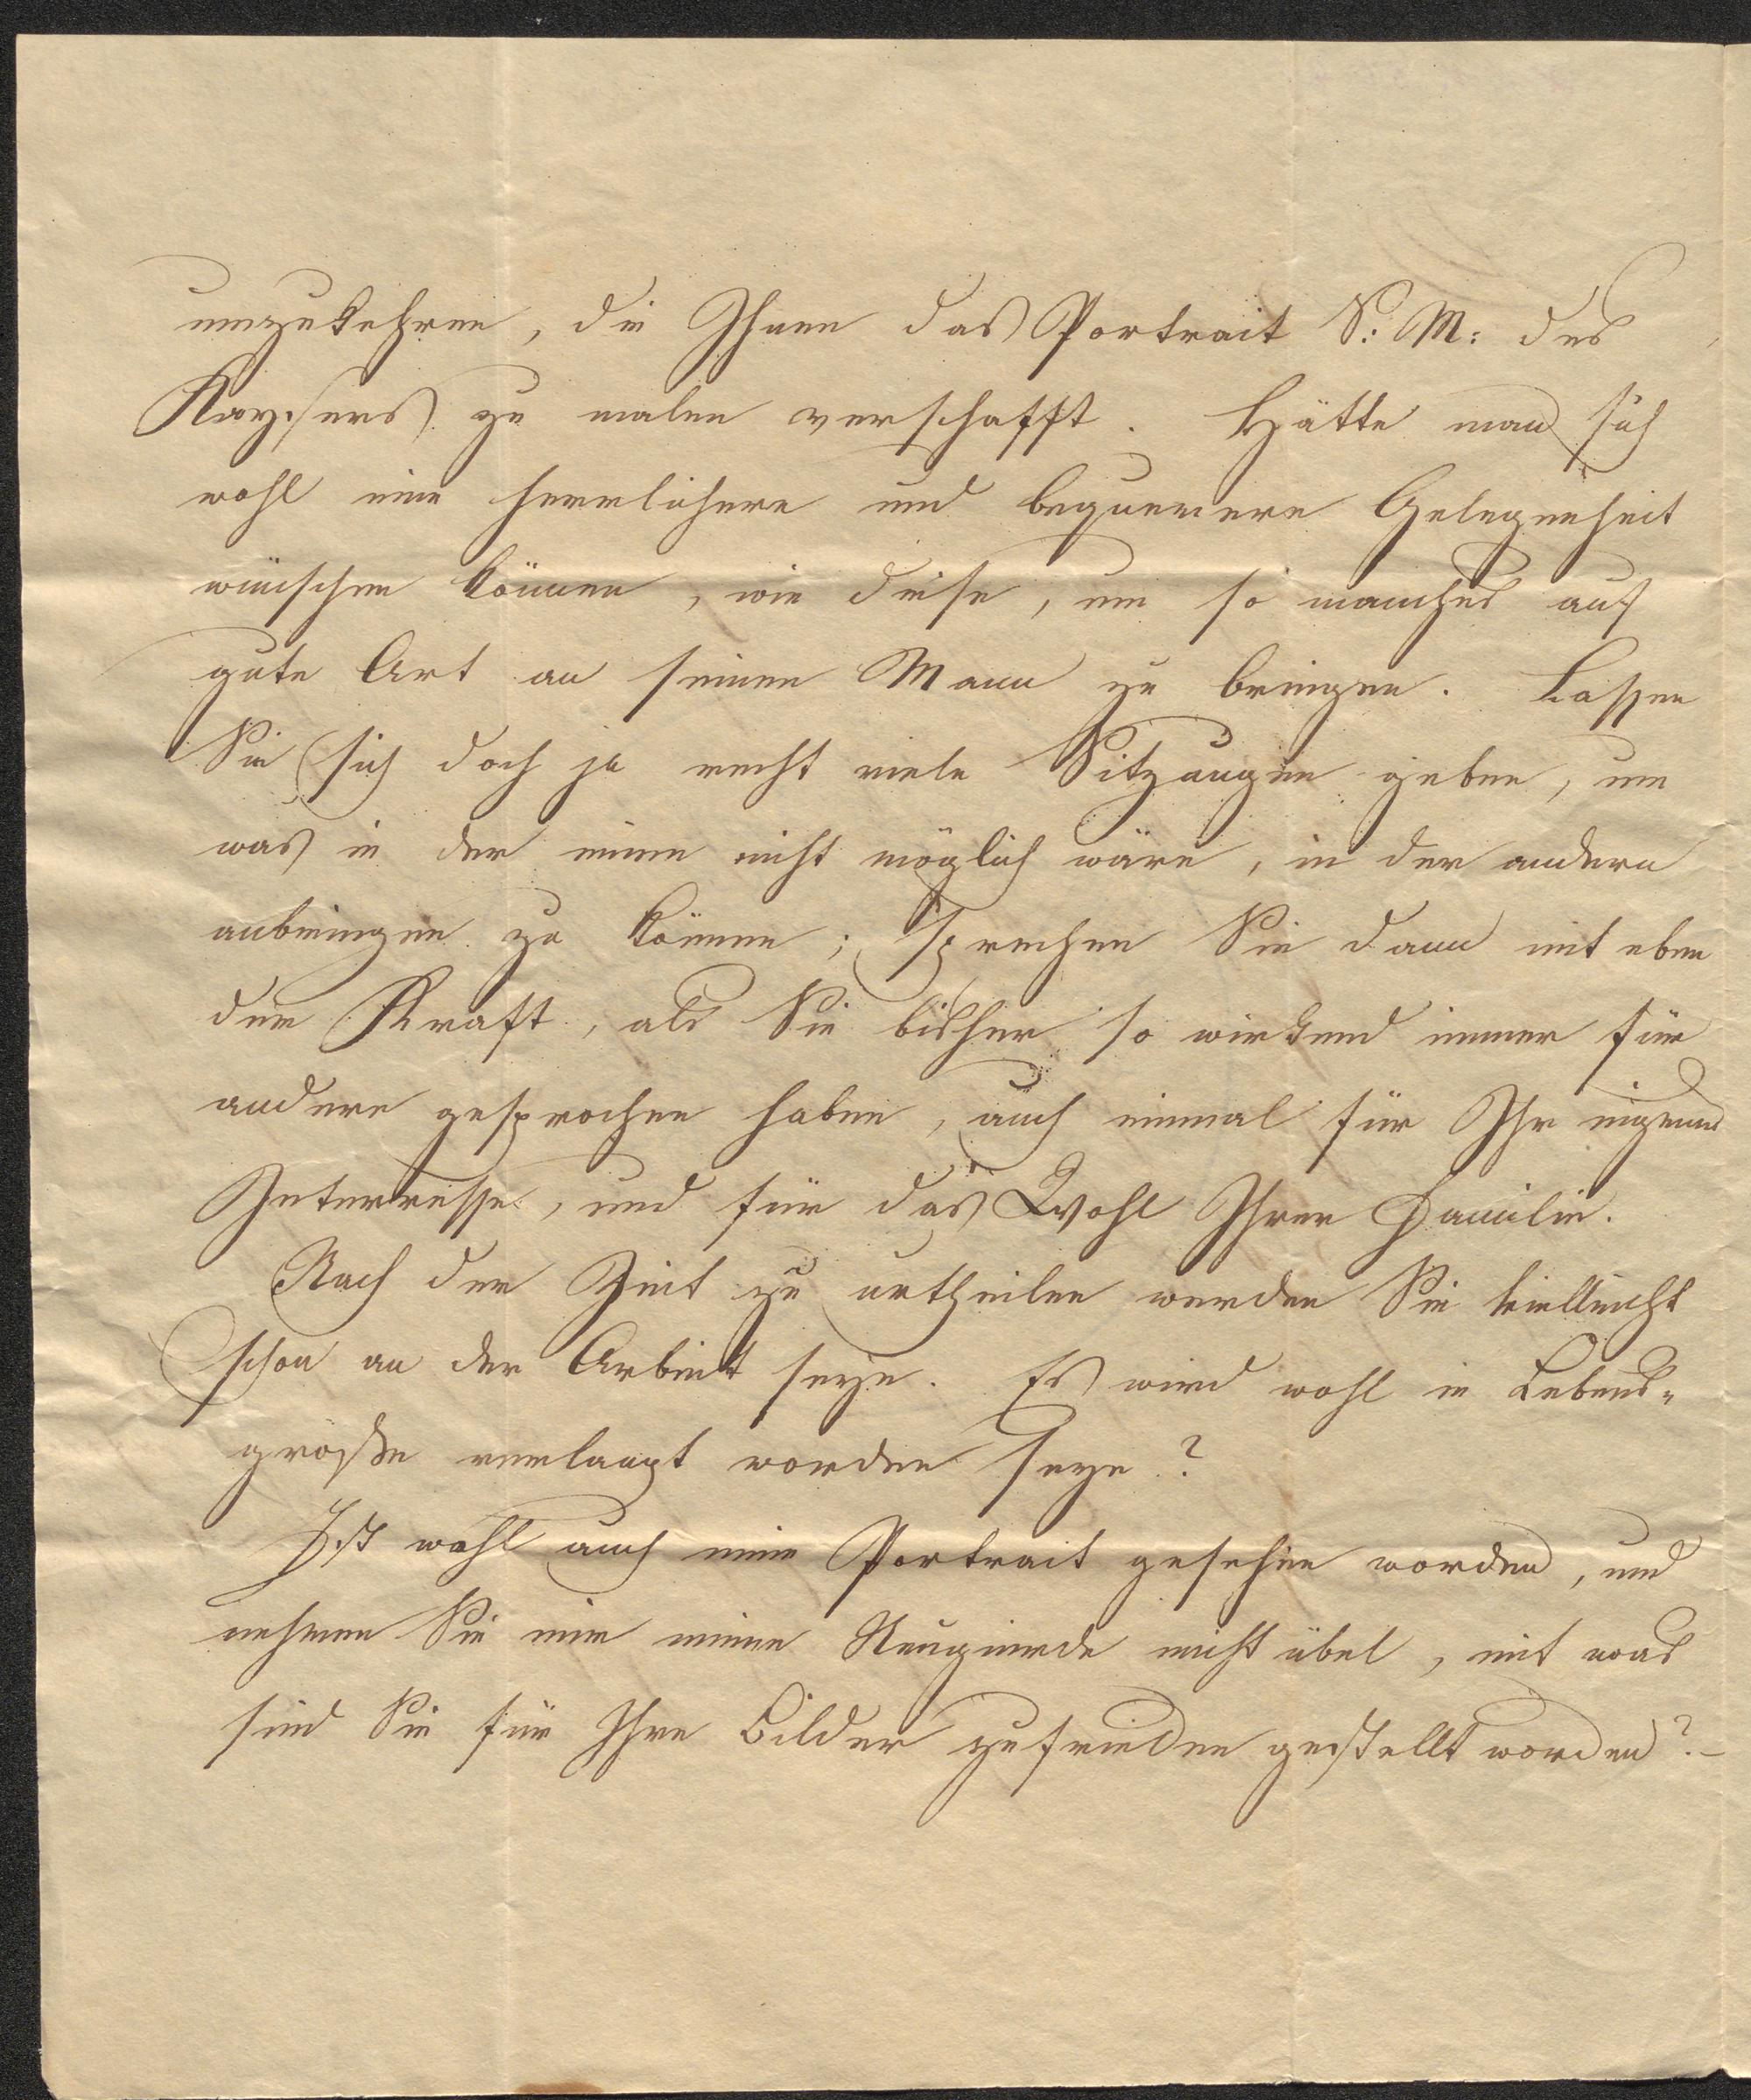 umzukehren, die Ihnen das Portrait S: M: des
Kaysers zu malen verschafft. Hätte man sich
wohl eine herrlichere und bequemere Gelegenheit
wünschen können, wie diese, um so manches auf
gute Art an seinen Mann zu bringen. Lassen
Sie sich doch ja recht viele Sitzungen geben, um
was in der einen nicht möglich wäre, in der andern
anbringen zu können; sprechen Sie dann mit eben
der Kraft, als Sie bisher so wirkend immer für
andere gesprochen haben, auch einmal für Ihr eigenes
Interresse, und für das Wohl Ihrer Familie.
Nach der Zeit zu urtheilen werden Sie vielleicht
schon an der Arbeit seyn. Es wird wohl in Lebens-
größe verlangt worden seyn?
Ist wohl auch mein Portrait gesehen worden, und
nehmen Sie mir meine Neugierde nicht übel, mit was
sind Sie für Ihre Bilder zufrieden gestellt worden? –